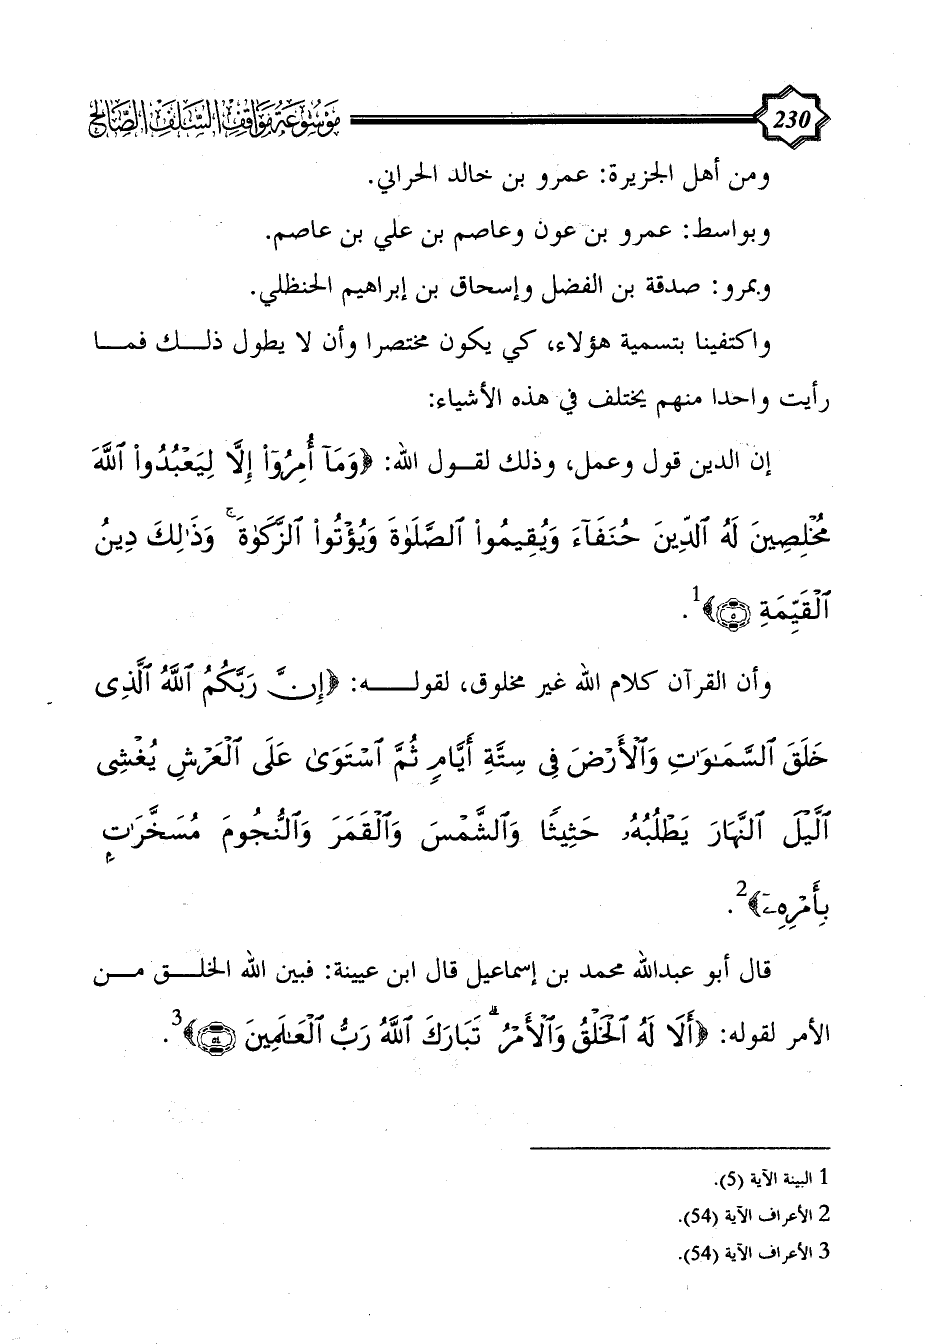 230 موسوعة مواقف السلف الصالح
ومن أهل الجزيرة: عمرو بن خالد الحراني.
وبواسط: عمرو بن عون وعاصم بن علي بن عاصم.
وبمرو: صدقة بن الفضل وإسحاق بن إبراهيم الحنظلي.
واكتفينا بتسمية هؤلاء، كي يكون مختصرا وأن لا يطول ذلك فما
رأيت واحدا منهم يختلف في هذه الأشياء:
إن الدين قول وعمل، وذلك لقول الله: ﴿وَمَآ أُمِرُوٓاْ إِلَّا لِيَعْبُدُواْ ٱللَّهَ
مُخْلِصِينَ لَهُ ٱلدِّينَ حُنَفَآءَ وَيُقِيمُواْ ٱلصَّلَوٰةَ وَيُؤْتُواْ ٱلزَّكَوٰةَ ۚ وَذَٰلِكَ دِينُ
ٱلْقَيِّمَةِ ۝٥﴾1.
وأن القرآن كلام الله غير مخلوق، لقوله: ﴿إِنَّ رَبَّكُمُ ٱللَّهُ ٱلَّذِى
خَلَقَ ٱلسَّمَٰوَٰتِ وَٱلْأَرْضَ فِى سِتَّةِ أَيَّامٍ ثُمَّ ٱسْتَوَىٰ عَلَى ٱلْعَرْشِ يُغْشِى
ٱلَّيْلَ ٱلنَّهَارَ يَطْلُبُهُۥ حَثِيثًا وَٱلشَّمْسَ وَٱلْقَمَرَ وَٱلنُّجُومَ مُسَخَّرَٰتٍۭ
بِأَمْرِهِۦٓ﴾2.
قال أبو عبدالله محمد بن إسماعيل قال ابن عيينة: فبين الله الخلق من
الأمر لقوله: ﴿أَلَا لَهُ ٱلْخَلْقُ وَٱلْأَمْرُ ۗ تَبَارَكَ ٱللَّهُ رَبُّ ٱلْعَٰلَمِينَ ۝٥٤﴾3.
1 البينة الآية (5).
2 الأعراف الآية (54).
3 الأعراف الآية (54).